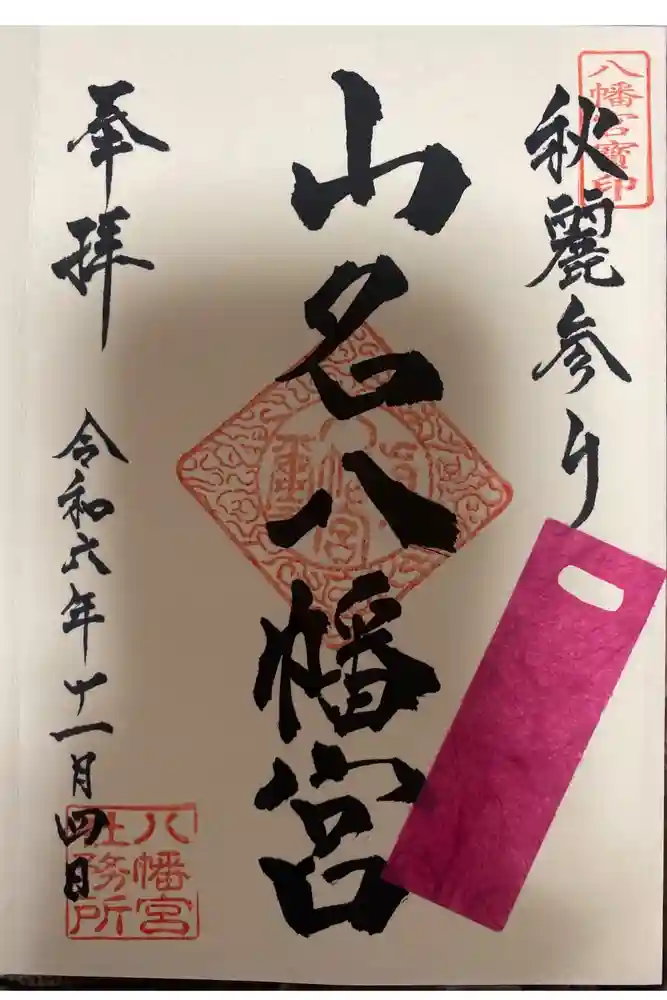 八幡宮寳印
秋麗参り
山名八幡宮
奉拝
令和六年十一月四日
八幡宮
社務所